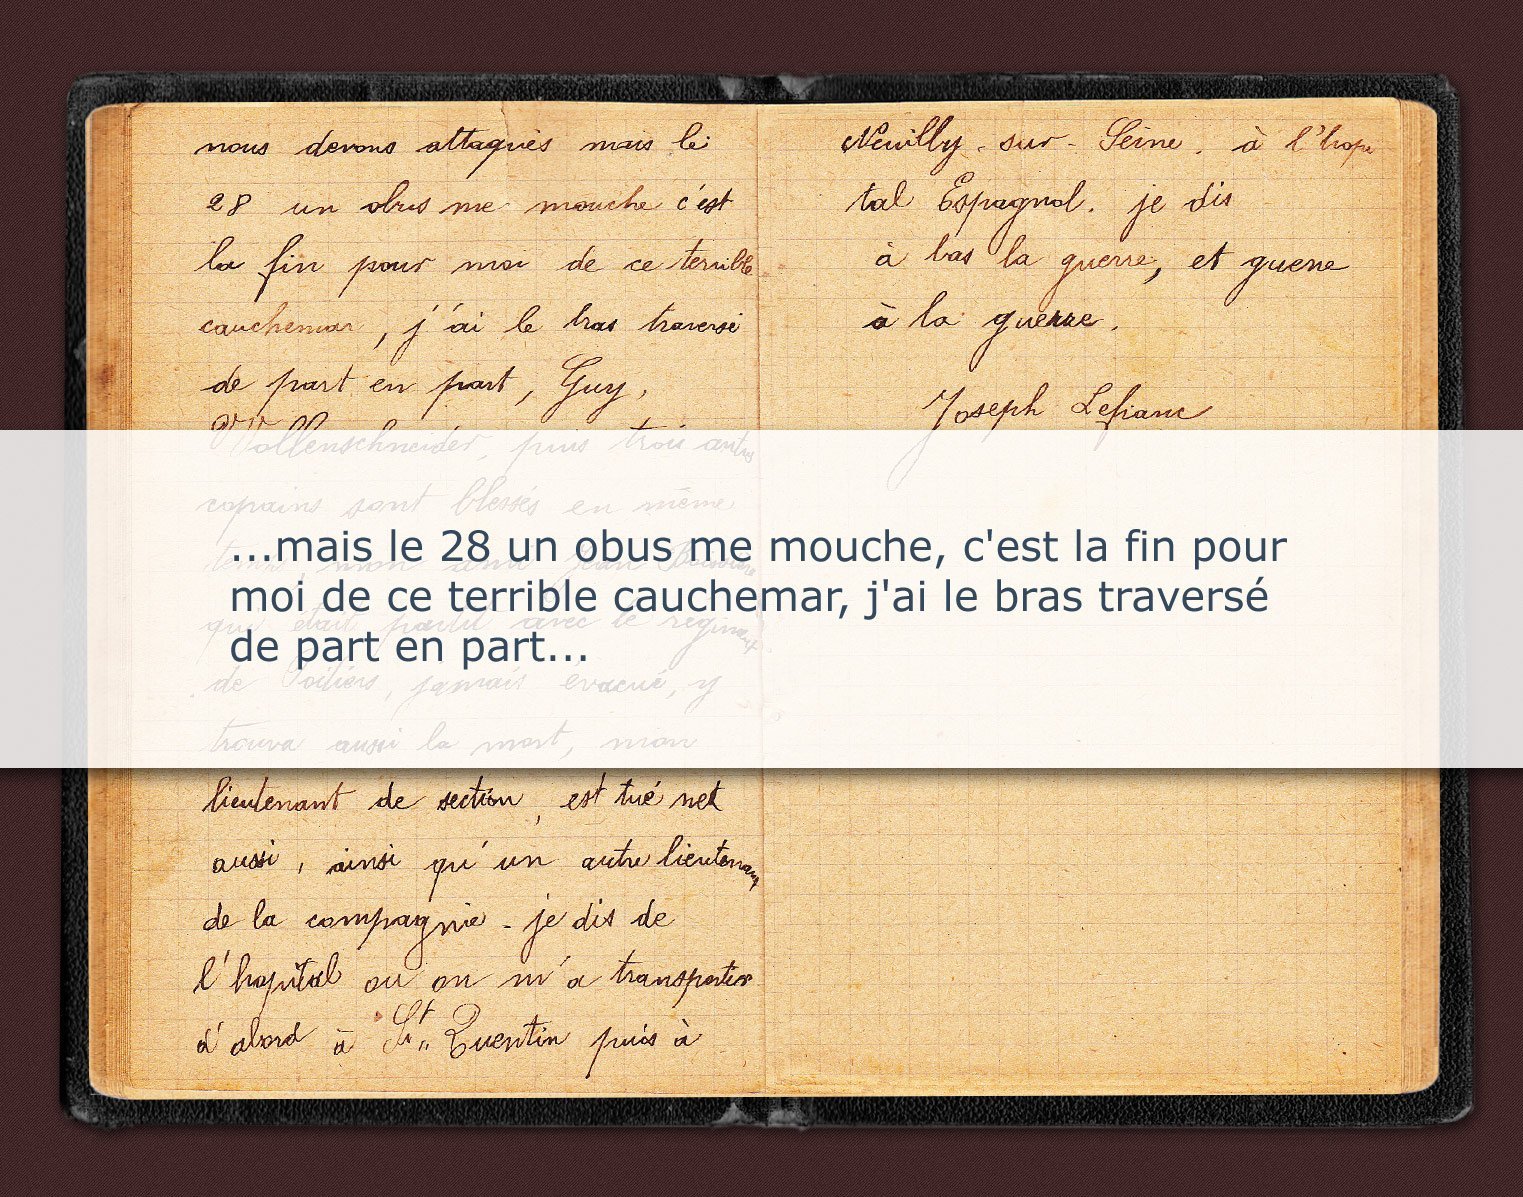 nous devons attaqués mais le
28 un obus me mouche c'est
la fin pour moi de ce terrible
cauchemar, j'ai le bras traversé
de part en part, Guy,
Wollenschneider, puis trois autres
copains sont blessés en même
temps, mon ami Jean
qui était partit avec le
de Poitiers, jamais évacué, y
trouva aussi la mort, mon
lieutenant de section, est tué net
aussi, ainsi qu'un autre lieutenant
de la compagnie - je dis de
l'hopital ou on m'a transporter
d'abord à St. Quentin puis à
Neuilly-sur-Seine. à l'hopi
tal Espagnol. je dis
à bas la guerre, et guerre
à la guerre.
Joseph Lefranc
...mais le 28 un obus me mouche, c'est la fin pour
moi de ce terrible cauchemar, j'ai le bras traversé
de part en part...